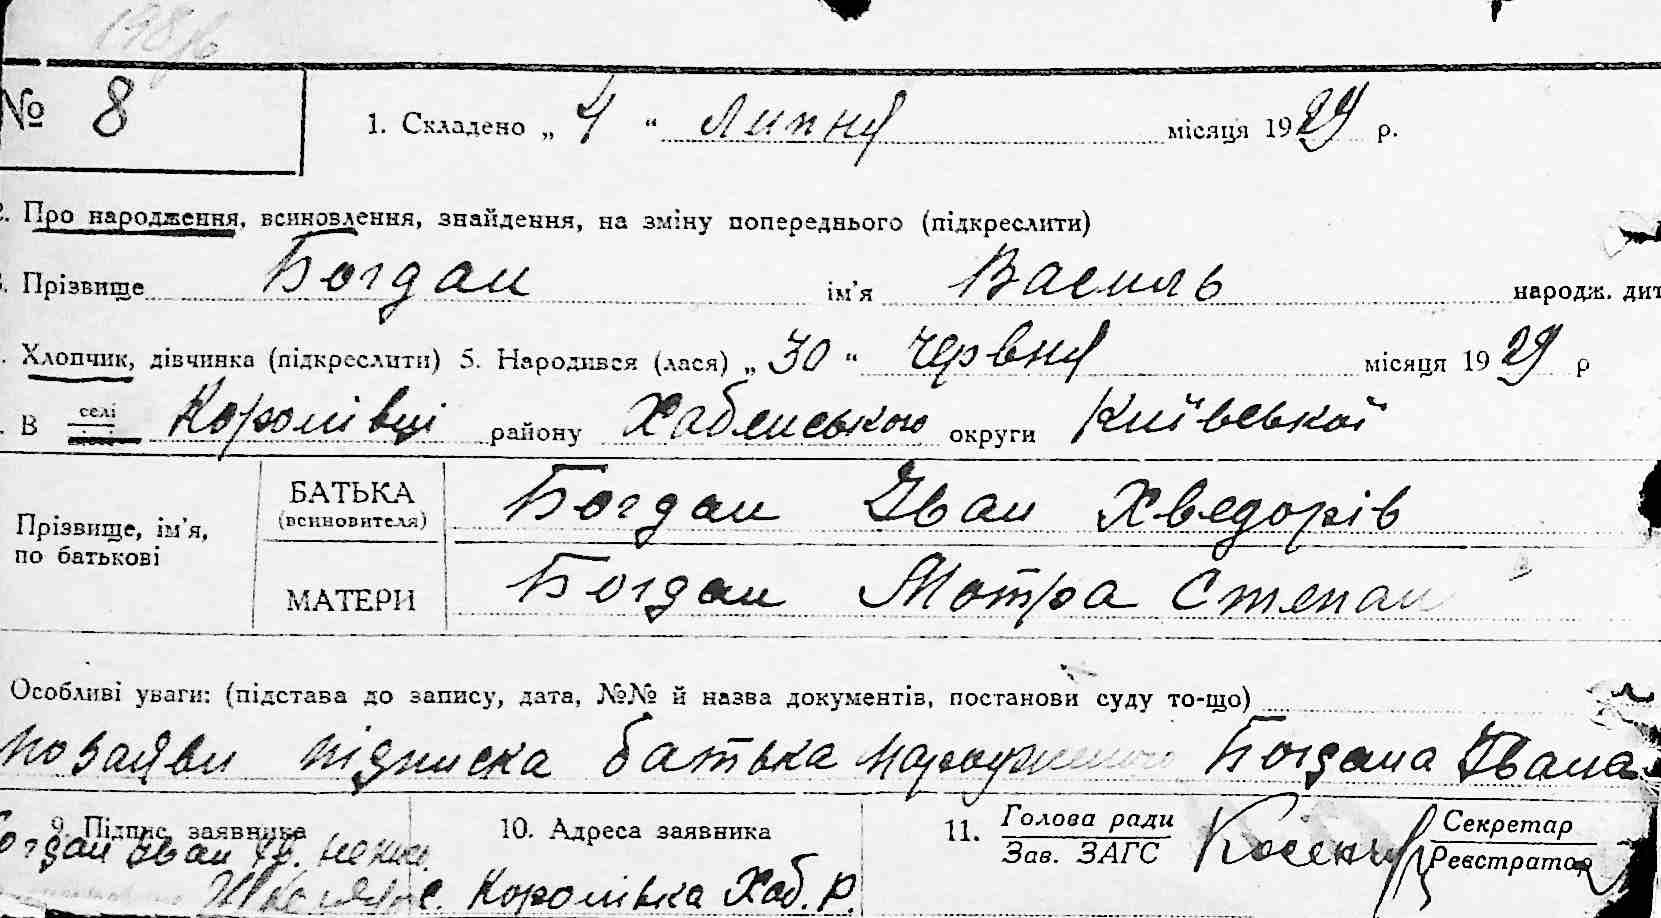 № 8
1. Складено „ 4 “ Липня місяця 1929 р.
2. Про народження, всиновлення, знайдення, на зміну попереднього (підкреслити)
Прізвище Богдан ім'я Василь народж. дит
Хлопчик, дівчинка (підкреслити) 5. Народився (лася) „ 30 “ червня місяця 1929 р
В селі Королівці району Хабенського округи Київської
Прізвище, ім'я, по батькові
БАТЬКА (всиновителя) Богдан Іван Хведорів
МАТЕРИ Богдан Мотра Степан
Особливі уваги: (підстава до запису, дата, №№ й назва документів, постанови суду то-що)
по заяви підписка батька народженого Богдана Івана
9. Підпис заявника
10. Адреса заявника
11. Голова ради
Зав. ЗАГС
Секретар
Реєстратор
Богдан Іван
с. Королівка Хаб. Р.